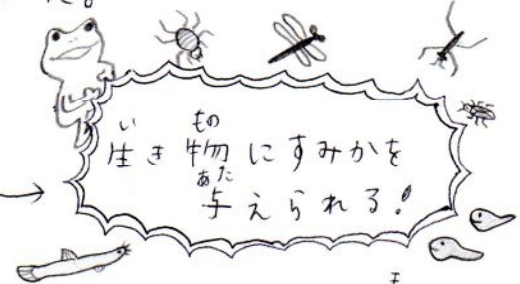 た。
生き物にすみかを
与えられる!